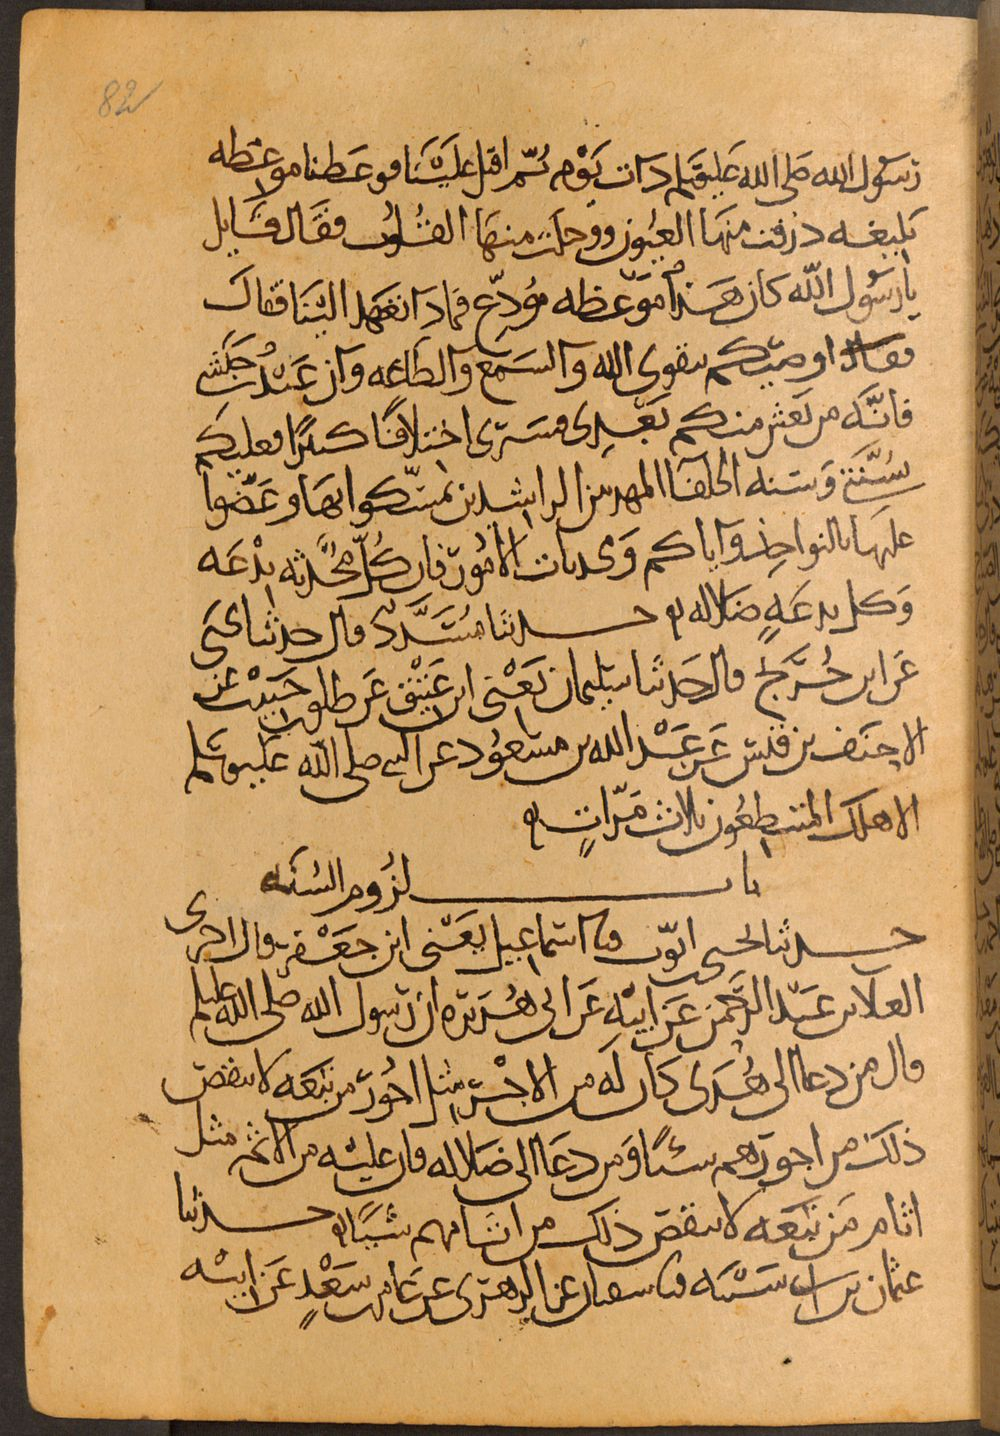 82
رسول الله صلى الله عليه وسلم ذات يوم ثم اقبل علينا فوعظنا موعظه
بليغه ذرفت منها العيون ووجلت منها القلوب فقال قايل
يا رسول الله كان هذا موعظه مودع فماذا تعهد الينا فقال
فقال اوصيكم بتقوى الله والسمع والطاعه وان عبد حبشي
فانه من يعش منكم بعدي فسترى اختلافا كثيرا فعليكم
بسنتي وسنه الخلفا المهديين الراشدين تمسكوا بها وعضوا
عليها بالنواجذ واياكم ومحدثات الامور فان كل محدثه بدعه
وكل بدعه ضلاله حدثنا مسدد قال حدثنا يحيى
عن ابن جريج قال حدثنا سليمان يعني ابن عتيق عن طلق بن حبيب عن
الاحنف بن قيس عن عبد الله بن مسعود عن النبي صلى الله عليه وسلم
الا هلك المتنطعون ثلاث مرات
باب لزوم السنه
حدثنا يحيى بن ايوب قثا اسماعيل يعني ابن جعفر قال اخبرني
العلا بن عبد الرحمن عن ابيه عن ابي هريره ان رسول الله صلى الله عليه وسلم
قال من دعا الى هدى كان له من الاجر مثل اجور من تبعه لا ينقص
ذلك من اجورهم شيئا ومن دعا الى ضلاله فان عليه من الاثم مثل
اثام من تبعه لا ينقص ذلك من اثامهم شيئا حدثنا
عثمان بن ابي شيبه قثا سفيان عن الزهري عن عامر بن سعد عن ابيه